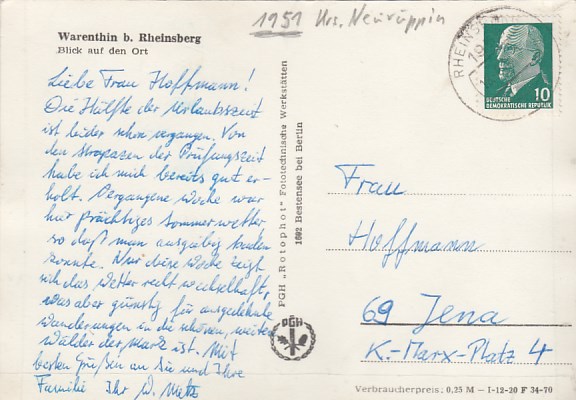 1951 Krs. Neuruppin
Warenthin b. Rheinsberg
Blick auf den Ort
Liebe Frau Hoffmann!
Die Hälfte der Urlaubszeit
ist leider schon vergangen. Von
den Strapazen der Prüfungszeit
habe ich mich bereits gut er-
holt. Vergangene Woche war
hier prächtiges Sommerwetter,
so daß man ausgiebig baden
konnte. Nur diese Woche zeigt
sich das Wetter recht wechselhaft,
was aber günstig für ausgedehnte
Wanderungen in die schönen, weiten
Wälder der Mark ist. Mit
besten Grüßen an Sie und Ihre
Familie Ihr W.
PGH „Rotophot“ Fototechnische Werkstätten
1092 Bestensee bei Berlin
PGH
RHEINS
19
10
DEUTSCHE
DEMOKRATISCHE REPUBLIK
Frau
Hoffmann
69 Jena
K.-Marx-Platz 4
Verbraucherpreis: 0,25 M – I-12-20 F 34-70